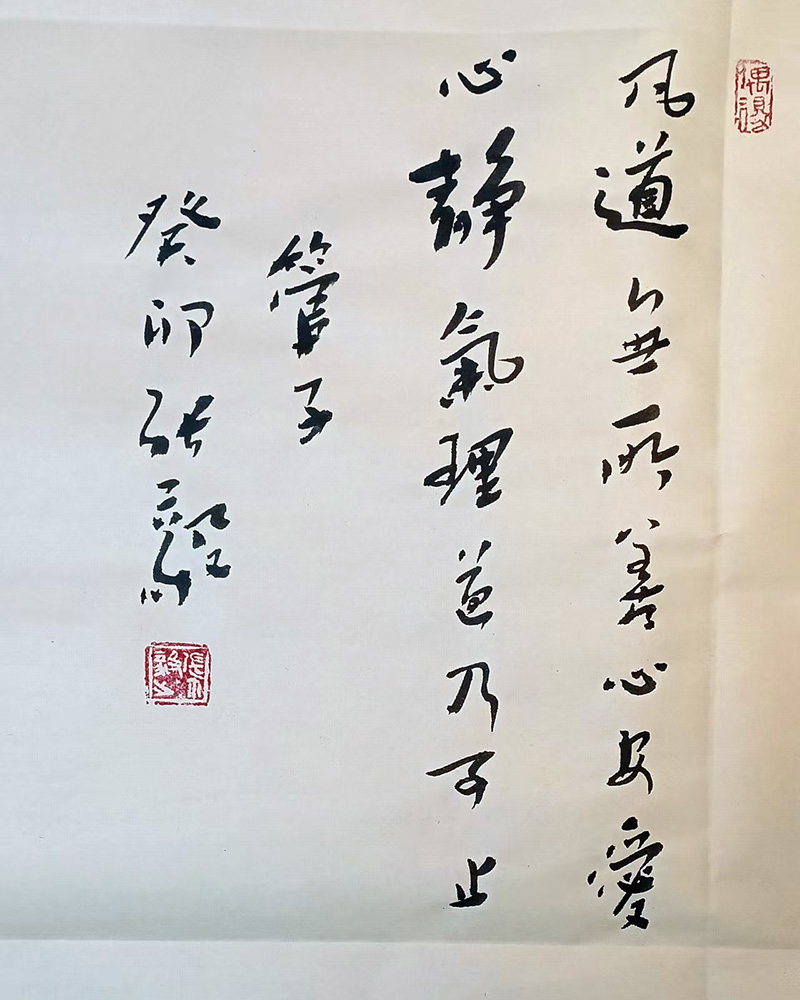 偶得
凡道無所善心安愛
心靜氣理道乃可止
管子
癸卯張